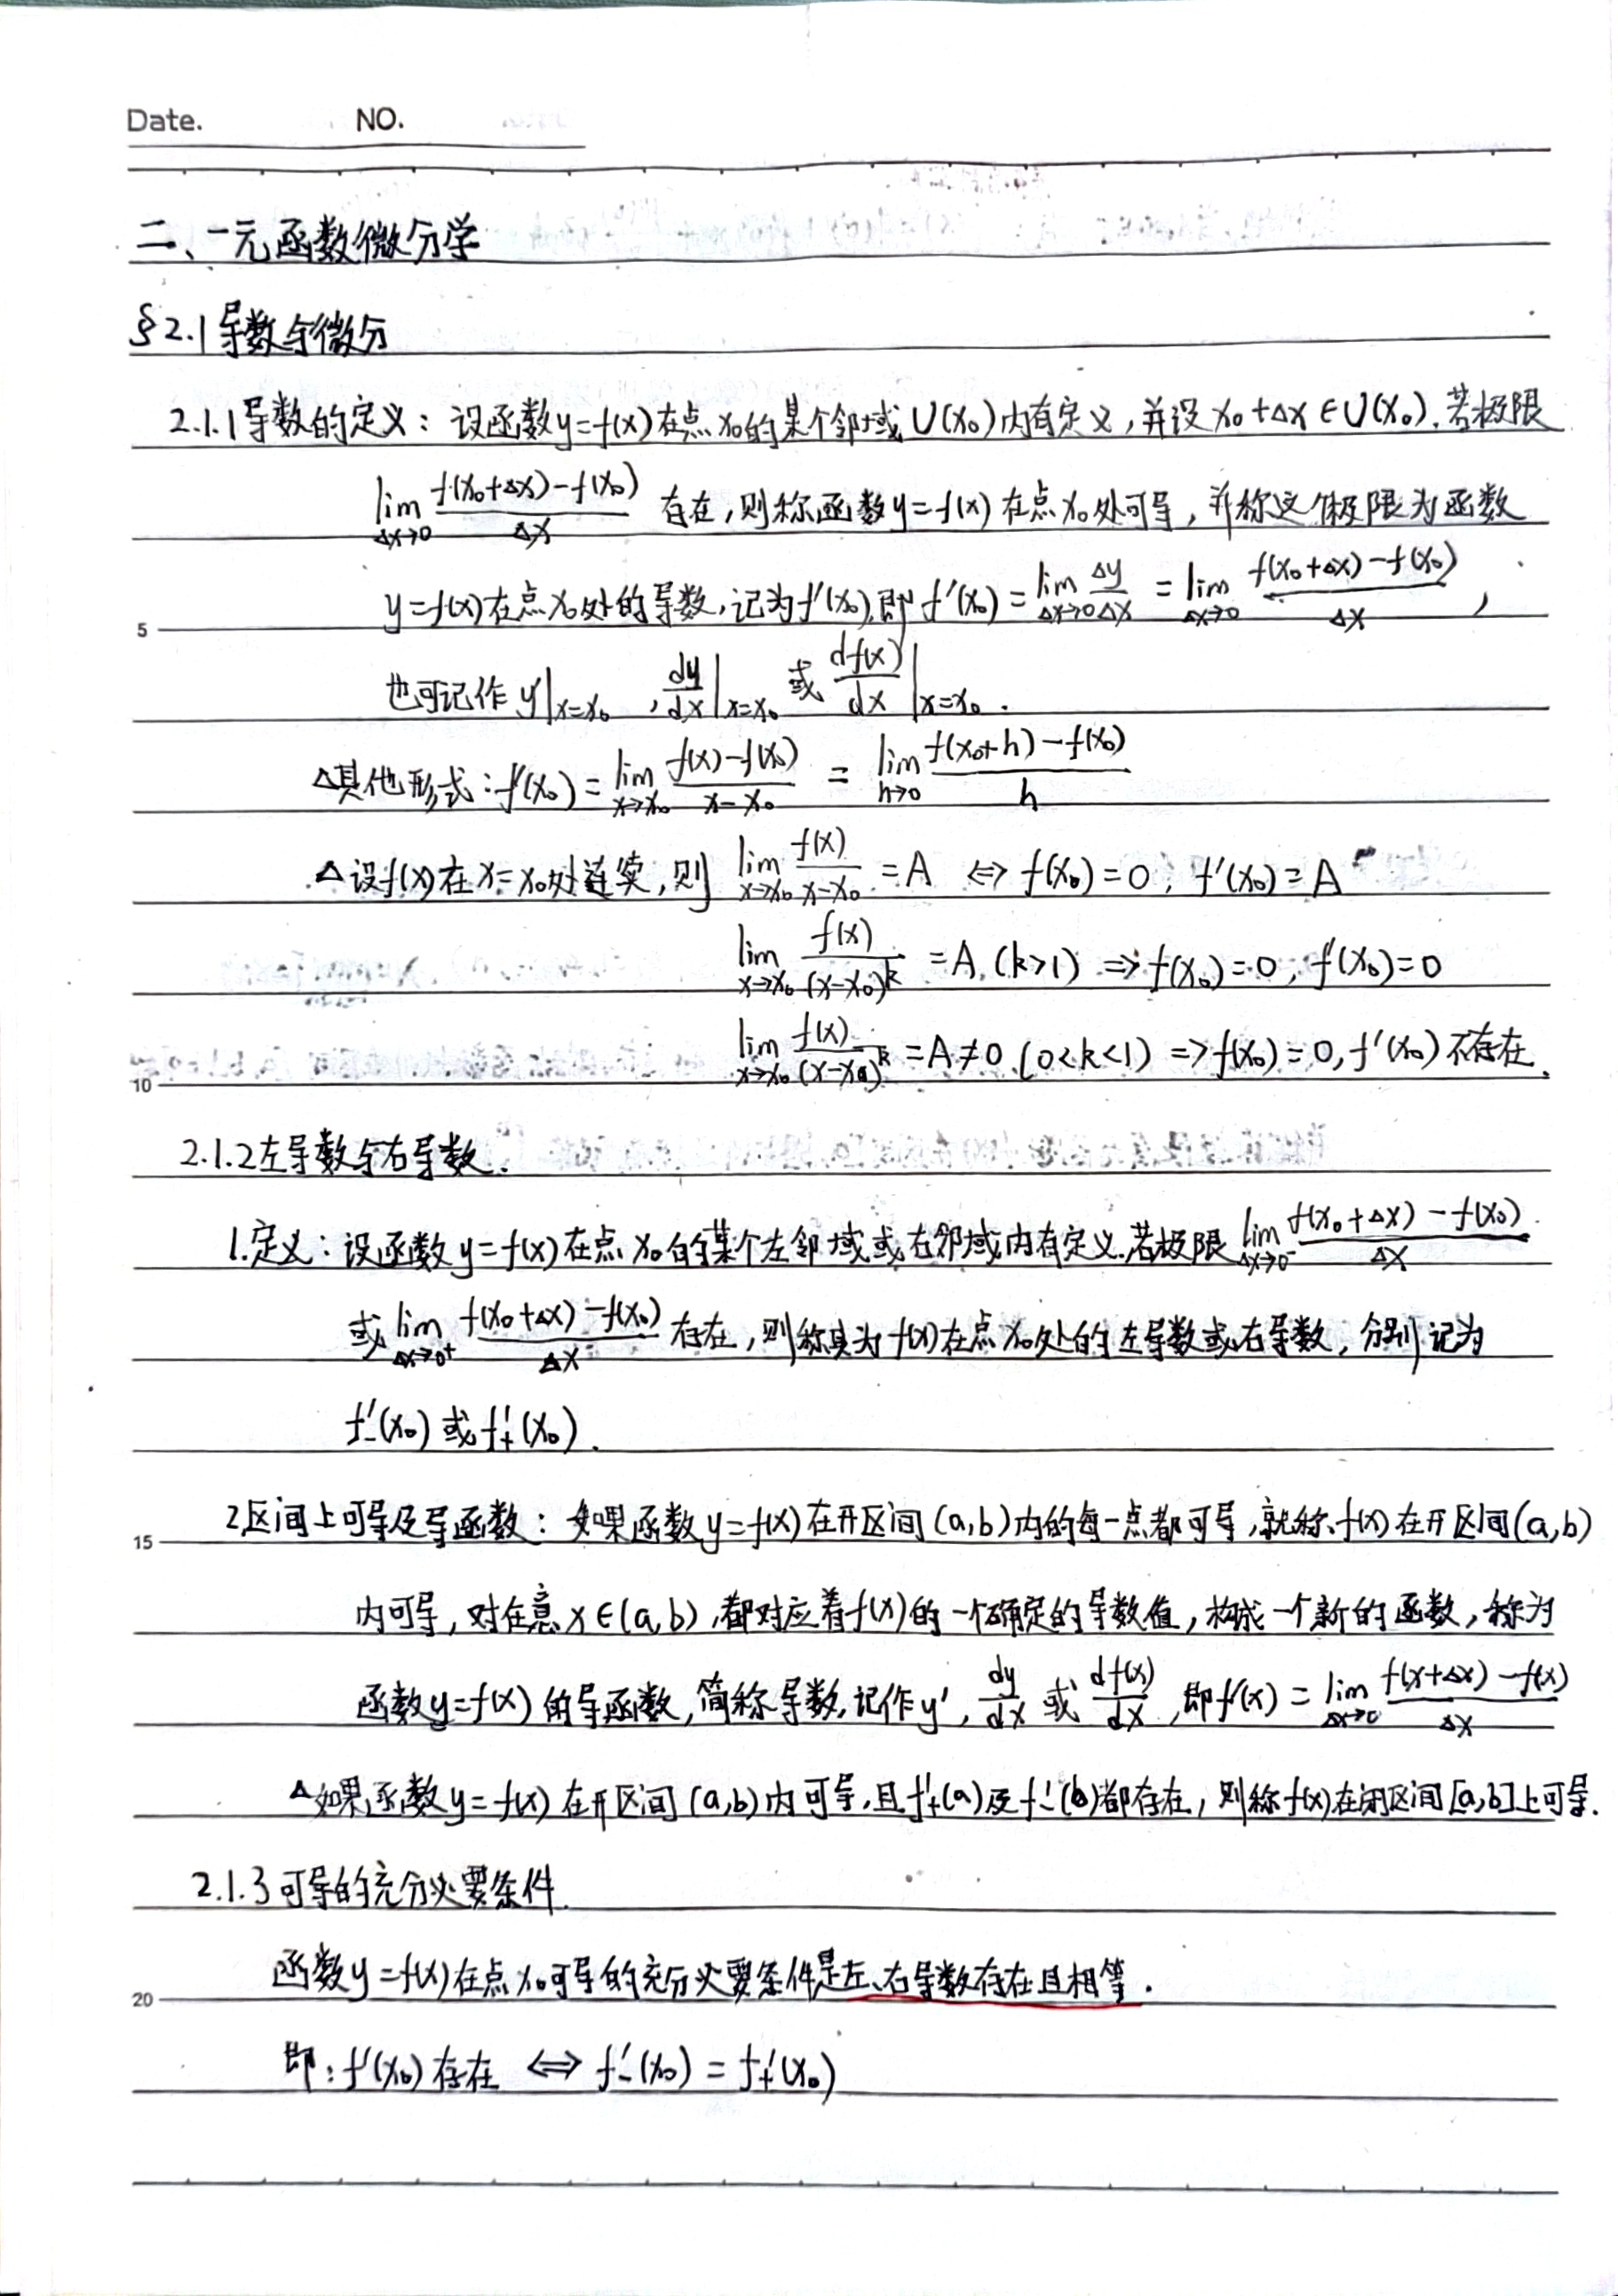 Date. NO.
二、一元函数微分学
§2.1 导数与微分
2.1.1 导数的定义：设函数y=f(x)在点x₀的某个邻域U(x₀)内有定义,并设x₀+Δx∈U(x₀).若极限
lim_{Δx→0} (f(x₀+Δx)-f(x₀))/Δx 存在,则称函数y=f(x)在点x₀处可导,并称这个极限为函数
5 y=f(x)在点x₀处的导数,记为f'(x₀),即f'(x₀)=lim_{Δx→0} Δy/Δx = lim_{Δx→0} (f(x₀+Δx)-f(x₀))/Δx ,
也可记作y'|_{x=x₀} , dy/dx|_{x=x₀} 或 df(x)/dx|_{x=x₀} .
Δ其他形式:f'(x₀)=lim_{x→x₀} (f(x)-f(x₀))/(x-x₀) = lim_{h→0} (f(x₀+h)-f(x₀))/h
Δ设f(x)在x=x₀处连续,则 lim_{x→x₀} f(x)/(x-x₀) = A ⇔ f(x₀)=0, f'(x₀)=A
lim_{x→x₀} f(x)/(x-x₀)^k = A, (k>1) ⇒ f(x₀)=0, f'(x₀)=0
10 lim_{x→x₀} f(x)/(x-x₀)^k = A≠0 (0<k<1) ⇒ f(x₀)=0, f'(x₀)不存在.
2.1.2 左导数与右导数.
1.定义:设函数y=f(x)在点x₀的某个左邻域或右邻域内有定义.若极限 lim_{Δx→0⁻} (f(x₀+Δx)-f(x₀))/Δx
或 lim_{Δx→0⁺} (f(x₀+Δx)-f(x₀))/Δx 存在,则称其为f(x)在点x₀处的左导数或右导数,分别记为
f'₋(x₀)或f'₊(x₀).
15 2.区间上可导及导函数:如果函数y=f(x)在开区间(a,b)内的每一点都可导,就称f(x)在开区间(a,b)
内可导,对任意x∈(a,b),都对应着f(x)的一个确定的导数值,构成一个新的函数,称为
函数y=f(x)的导函数,简称导数,记作y', dy/dx 或 df(x)/dx ,即f'(x)=lim_{Δx→0} (f(x+Δx)-f(x))/Δx
Δ如果函数y=f(x)在开区间(a,b)内可导,且f'₊(a)及f'₋(b)都存在,则称f(x)在闭区间[a,b]上可导.
2.1.3 可导的充分必要条件.
20 函数y=f(x)在点x₀可导的充分必要条件是左、右导数存在且相等.
即:f'(x₀)存在 ⇔ f'₋(x₀)=f'₊(x₀)